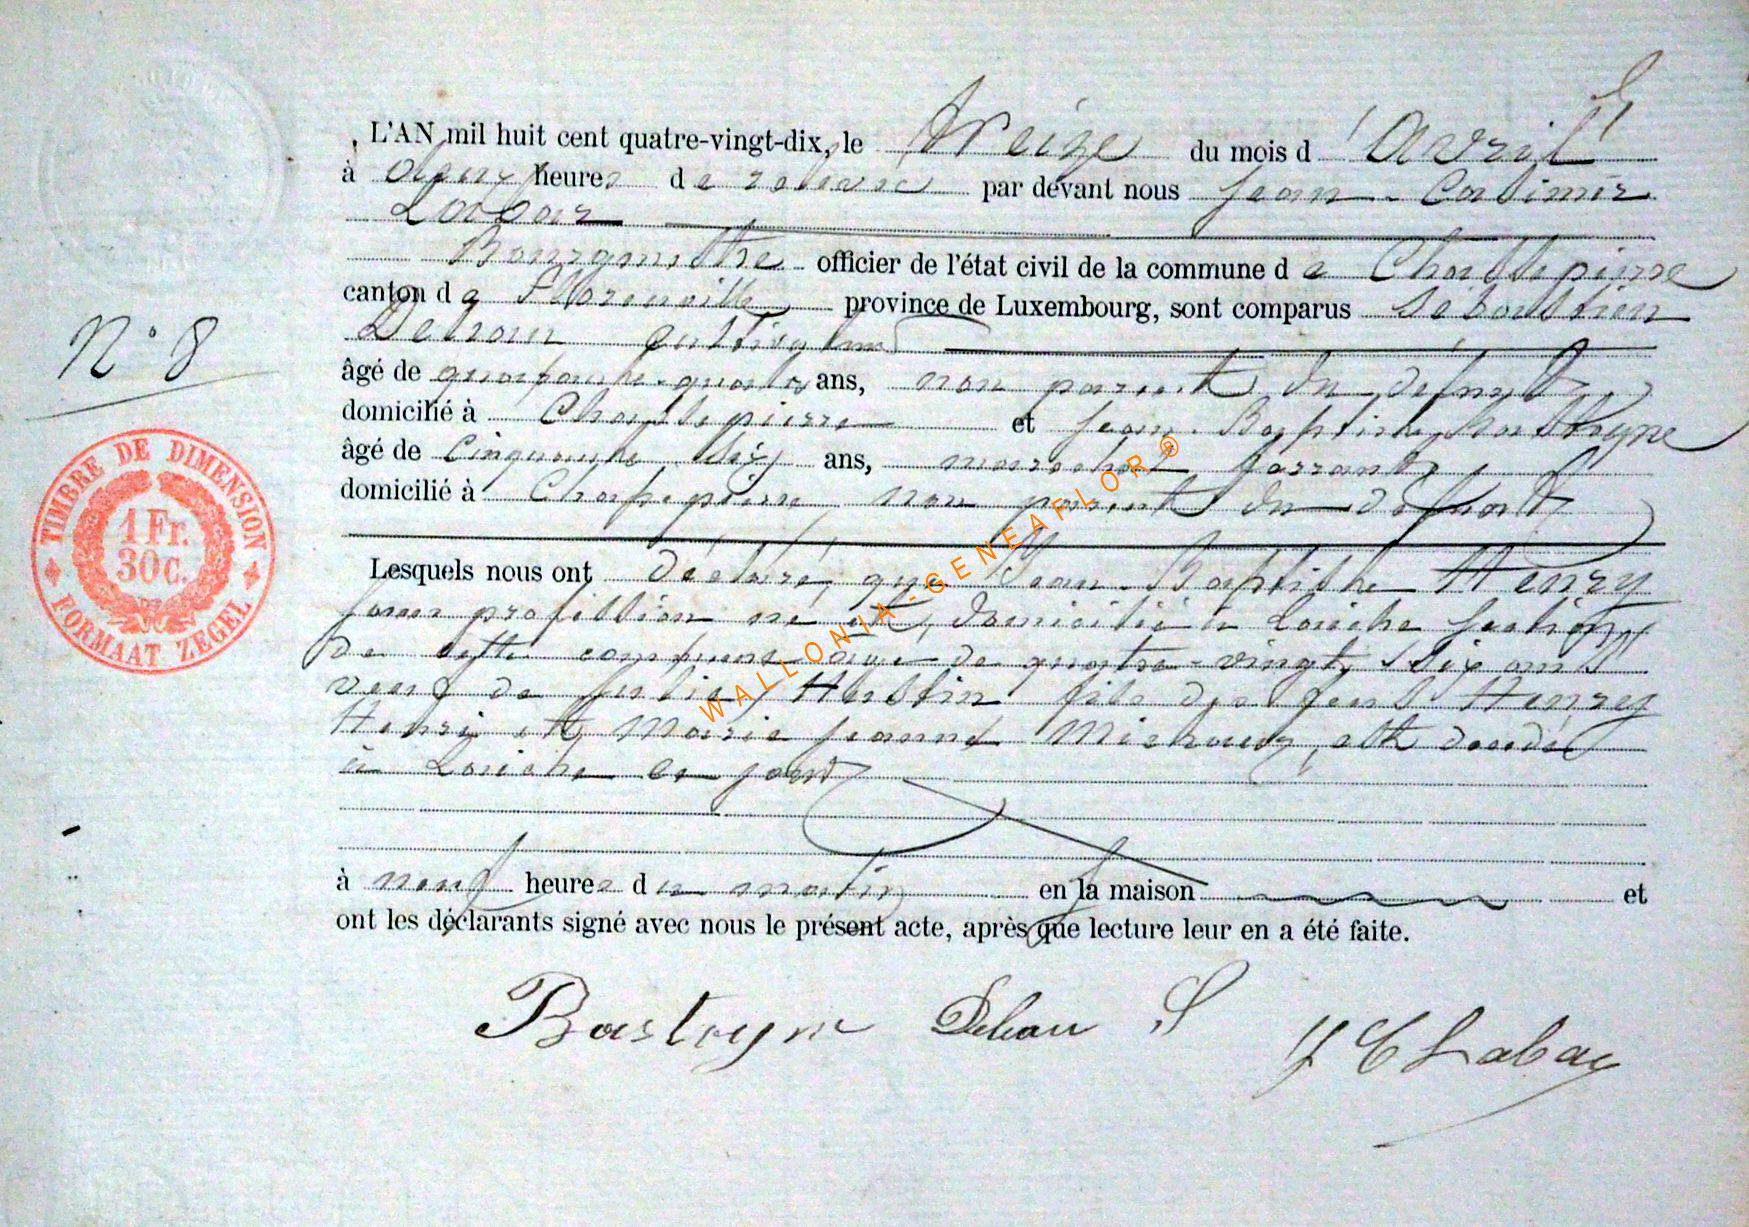 L'AN mil huit cent quatre-vingt-dix, le treize du mois d'Avril
à deux heures de relevée par devant nous Jean-Casimir
Labar
Bourgmestre officier de l'état civil de la commune de Chassepierre
canton de Florenville province de Luxembourg, sont comparus Sébastien
cultivateur
âgé de quarante-quatre ans, non parent du défunt
domicilié à Chassepierre et Jean-Baptiste Bastogne
âgé de cinquante six ans, marechal ferrant
domicilié à Chassepierre, non parent du défunt
Lesquels nous ont déclaré, que Jean-Baptiste Henry
sans profession né et domicilié à Laiche section
de cette commune âgé de quatre-vingt six ans
veuf de Hustin fils des feus Henry
Henri et Marie Jeanne est décédé
à Laiche ce jour
N° 8
TIMBRE DE DIMENSION
1 Fr.
30 C.
FORMAAT ZEGEL
à neuf heures du matin en la maison et
ont les déclarants signé avec nous le présent acte, après que lecture leur en a été faite.
Bastogne S
J C Labar
WALLONIA-GENEAFLOR®